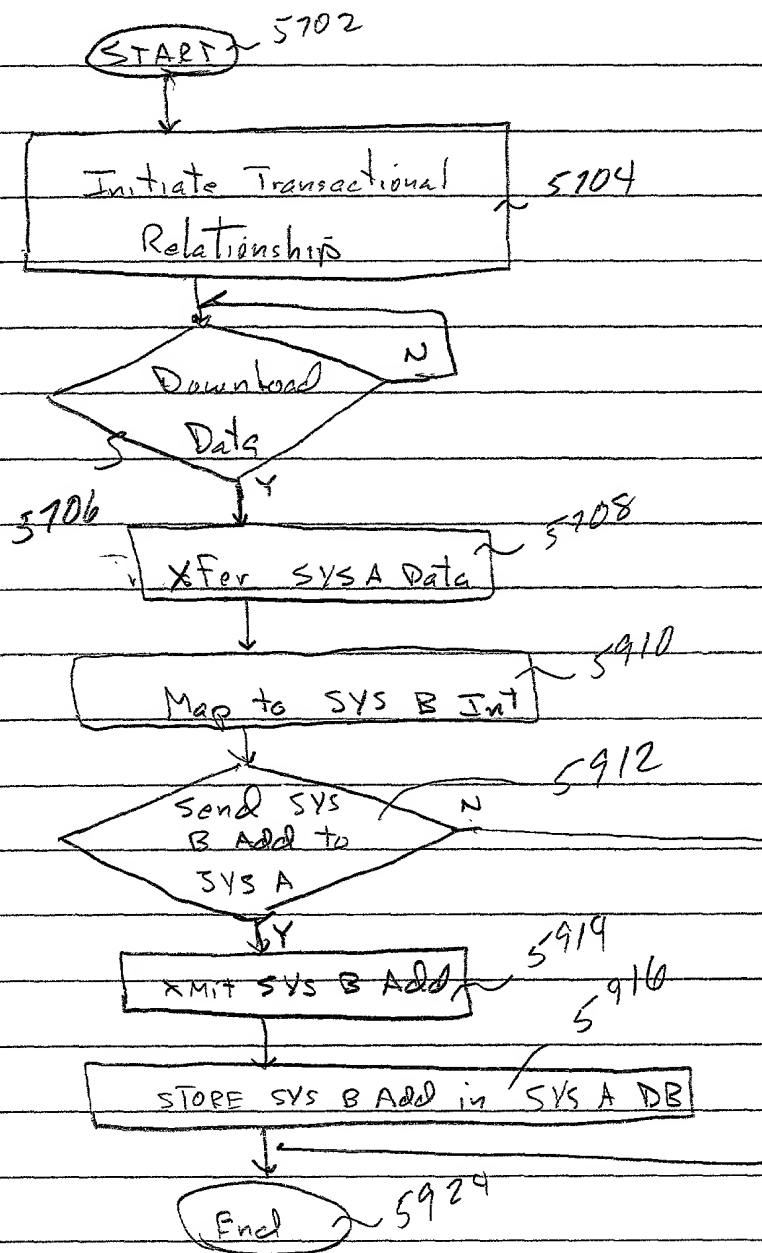 START 5702
Initiate Transactional
Relationship
5704
N
Download
Data
Y
5706
5708
XFer SYS A Data
5910
Map to SYS B Int
5912
Send SYS
B Add to
SYS A
N
Y
5914
XMit SYS B Add
5916
STORE SYS B Add in SYS A DB
End 5924